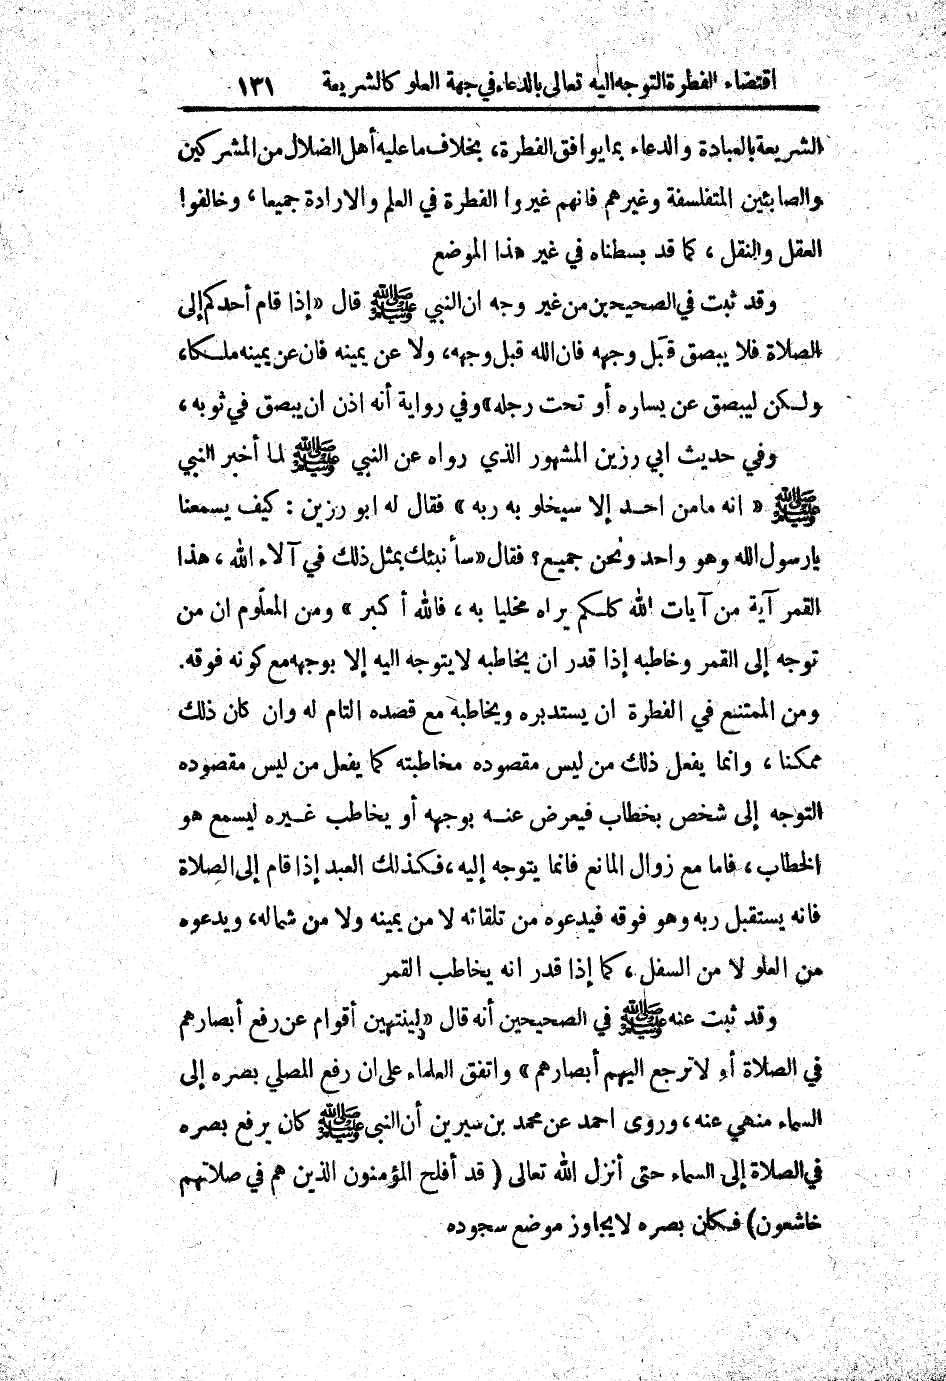 اقتضاء الفطرة التوجه اليه تعالى بالدعاء في جهة العلو كالشريعة ١٣١
الشريعة بالعبادة والدعاء بما يوافق الفطرة، بخلاف ما عليه أهل الضلال من المشركين
والصابئين المتفلسفة وغيرهم فانهم غيروا الفطرة في العلم والارادة جميعا ، وخالفوا
العقل والنقل ، كما قد بسطناه في غير هذا الموضع
وقد ثبت في الصحيحين من غير وجه ان النبي ﷺ قال «إذا قام أحدكم إلى
الصلاة فلا يبصق قبل وجهه فان الله قبل وجهه، ولا عن يمينه فان عن يمينه ملكا،
ولكن ليبصق عن يساره أو تحت رجله» وفي رواية أنه اذن ان يبصق في ثوبه ،
وفي حديث ابي رزين المشهور الذي رواه عن النبي ﷺ لما أخبر النبي
ﷺ « انه ما من احد إلا سيخلو به ربه » فقال له ابو رزين : كيف يسمعنا
يارسول الله وهو واحد ونحن جميع؟ فقال «سأنبئك بمثل ذلك في آلاء الله ، هذا
القمر آية من آيات الله كلكم يراه مخليا به ، فالله أكبر » ومن المعلوم ان من
توجه إلى القمر وخاطبه إذا قدر ان يخاطبه لا يتوجه اليه إلا بوجهه مع كونه فوقه.
ومن الممتنع في الفطرة ان يستدبره ويخاطبه مع قصده التام له وان كان ذلك
ممكنا ، وانما يفعل ذلك من ليس مقصوده مخاطبته كما يفعل من ليس مقصوده
التوجه إلى شخص بخطاب فيعرض عنه بوجهه أو يخاطب غيره ليسمع هو
الخطاب ، فاما مع زوال المانع فانما يتوجه إليه ، فكذلك العبد إذا قام إلى الصلاة
فانه يستقبل ربه وهو فوقه فيدعوه من تلقائه لا من يمينه ولا من شماله، ويدعوه
من العلو لا من السفل ، كما إذا قدر انه يخاطب القمر
وقد ثبت عنه ﷺ في الصحيحين أنه قال «لينتهين أقوام عن رفع أبصارهم
في الصلاة أو لا ترجع اليهم أبصارهم » واتفق العلماء على ان رفع المصلي بصره إلى
السماء منهي عنه ، وروى احمد عن محمد بن سيرين أن النبي ﷺ كان يرفع بصره
في الصلاة إلى السماء حتى أنزل الله تعالى ( قد أفلح المؤمنون الذين هم في صلاتهم
خاشعون) فكان بصره لا يجاوز موضع سجوده